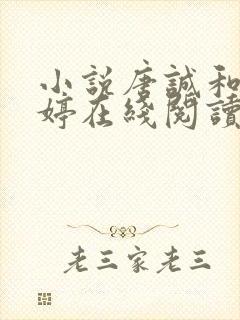 小説唐誠和
婷在綫閱讀
老三家老三